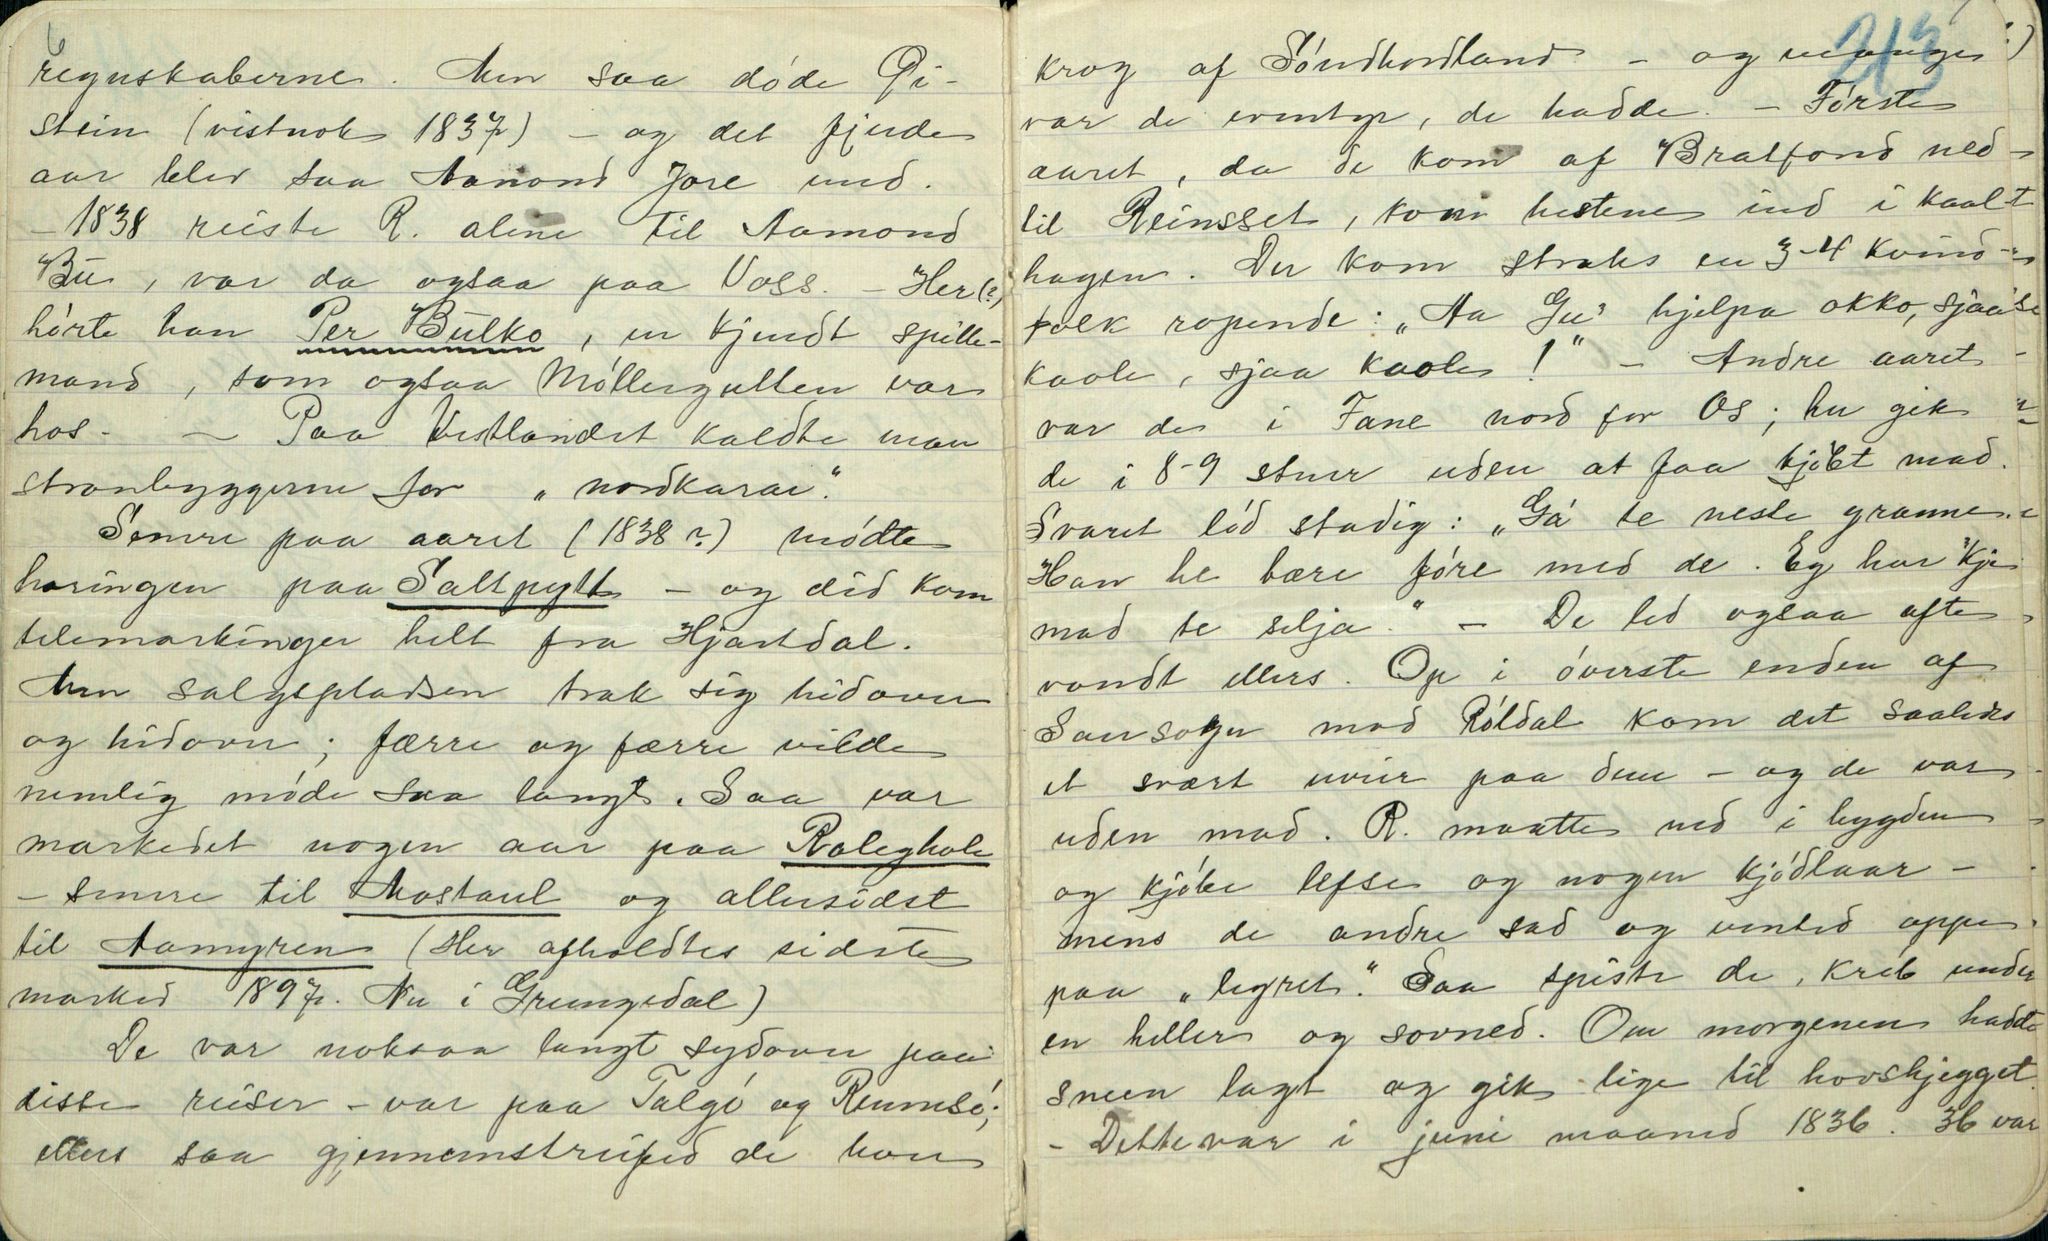 6
regnskaberne. Men saa døde Øi-
stein (vistnok 1837) – og det fjerde
aar blev saa Aamond Jore med.
– 1838 reiste R. alene til Aamond
Bu, var da ogsaa paa Voss. – Her (?)
hørte han Per Bulko, en kjendt spille-
mand, som ogsaa Møllergutten var
hos. – Paa Vestlandet kaldte man
strandbyggerne for „nordkarar“.
Senere paa aaret (1838?) mødte
haringen paa Saltpytt – og did kom
telemarkinger helt fra Hjartdal.
Men salgspladsen trak sig hidover
og hidover; færre og færre vilde
nemlig møde saa langt. Saa var
markedet nogen aar paa Roleghole
– senere til Mostaul og allersidst
til Aamyren (Her afholdtes sidste
marked 1897. Nu i Grungedal)
De var noksaa langt sydover paa
disse reiser – var paa Talgø og Rennesø;
ellers saa gjennemstreifed de hver
213
krog af Søndhordland – og mange
var de eventyr, de hadde. – Første
aaret, da de kom af Bratfond ned
til Reinsset, kom hestene ind i kaal-
hagen. Der kom straks en 3-4 kvind-
folk ropende: „Aa Gu' hjelpa okko, sjaa se
kaale, sjaa kaale!“ – Andre aaret
var de i Fane nord for Os; her gik
de i 8-9 stuer uden at faa kjøbt mad.
Svaret lød stadig: „Gå te neste granne.
Han he bære føre med de. Eg har 'kje
mad te selja.“ – De led ogsaa ofte
vondt ellers. Op i øverste enden af
Sausogn mod Røldal kom det saaledes
et svært uveir paa dem – og de var
uden mad. R. maatte ned i bygden
og kjøbe lefse og nogen kjødlaar –
mens de andre sad og vented oppe
paa „legret“. Saa spiste de, krøb under
en heller og sovned. Om morgenen hadde
sneen lagt og gik lige til hovskjegget.
– Dette var i juni maaned 1836. 36 var